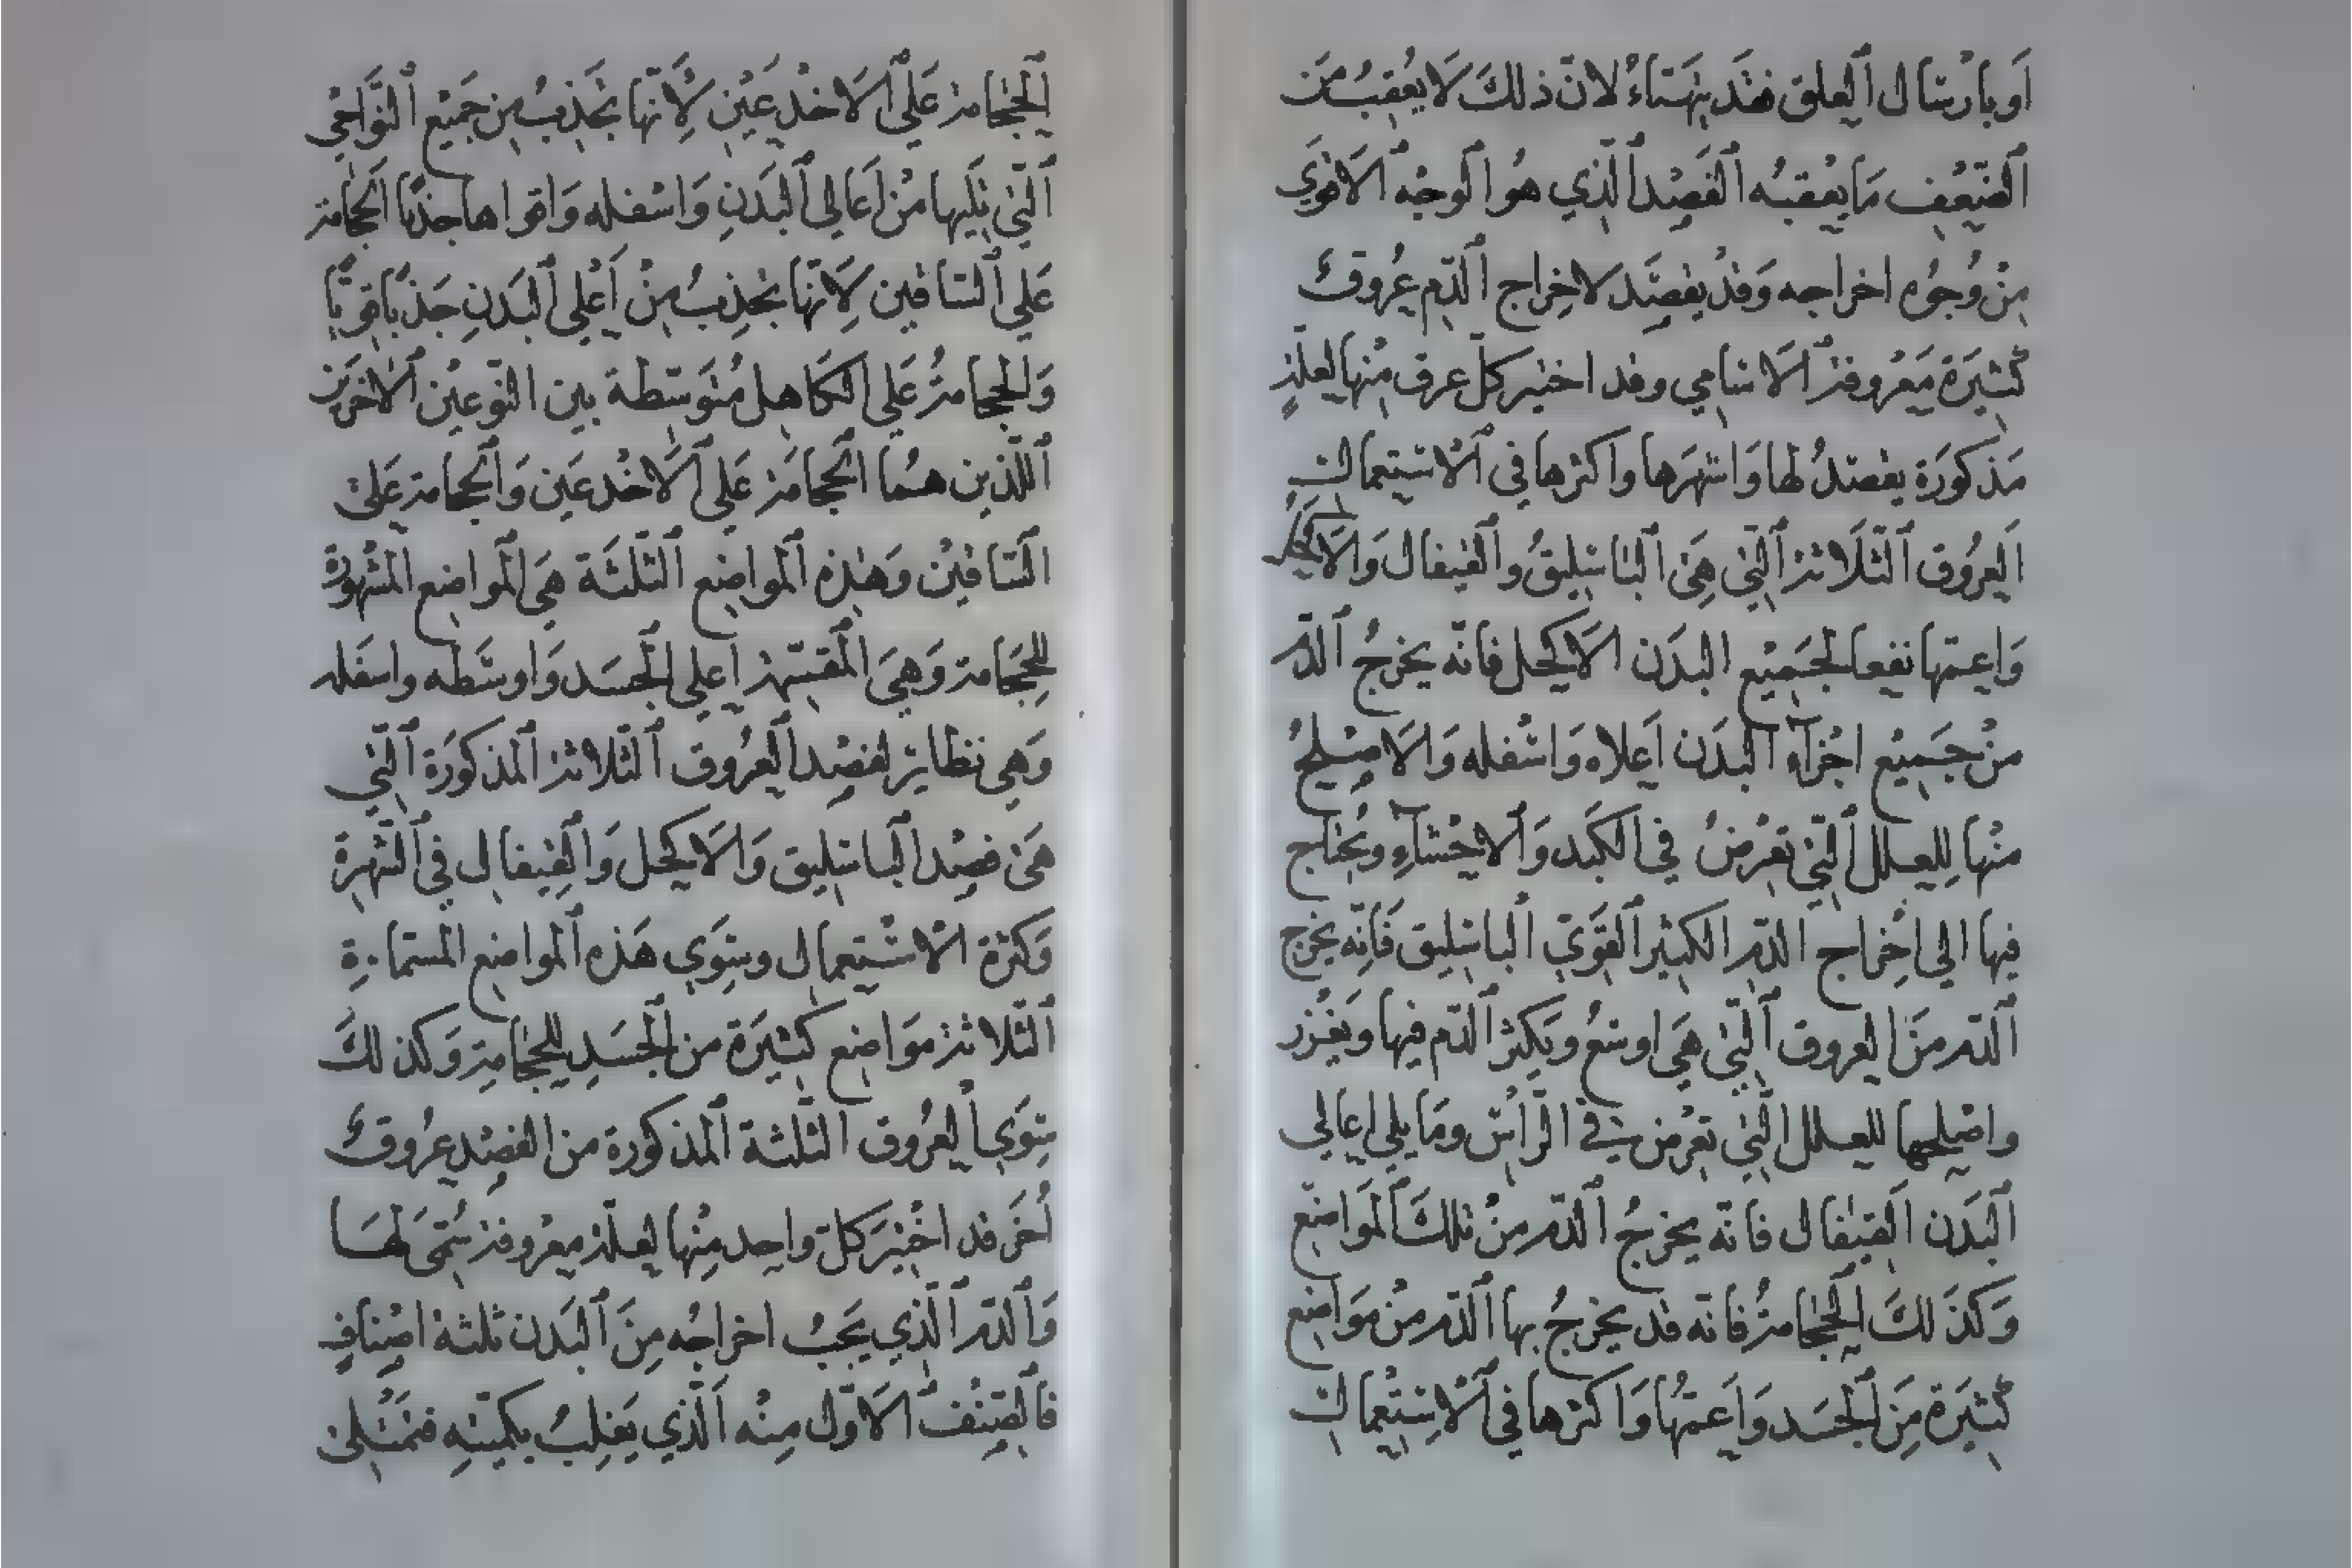 اَو بارْسَال اَلعلق فقد يتهيّأ لانّ ذلكَ لَا يُعقِبُ مَن
اَلضّعْف مَا يعْقبُه اَلفَصْد اَلّذي هُو اَلوجْه اَلاقوَي
مِنْ وُجوُهِ اخراجه وَقدْ يفصَد لاخِراج اَلدّم عُروق
كثيَرَة مَعْروفة اَلاسَامي وقد اختير كلّ عرق مْنها لعلّةٍ
مَذكورَة يفصدُ لها وَاشهرَها واكثرها في اَلاسْتِعمال
اَلعرُوق اَلثّلَاثة اَلّتي هَي اَلباسَليقُ واَلقيفال وَالاَكحل
وَاعمّها نفعا لجَميْع البدَن الاَكحل فانّه يخرجُ اَلدّم
منْ جَميْع اجْزآءِ اَلبدَن اَعلاه وَاسْفله وَالَاصْلحُ
منْها لِلعلل اَلتّي تعْرضُ في الكَبد وَاَلاحْشآءِ ويُحتاج
فيها الي اخْراج الدّم الكثير اَلقوَيّ اَلباسَليق فَانّه يخرج
اَلدّم منَ العروق اَلّتي هَي اوسَعُ ويَكثر اَلدّم فيها ويغْزر
واصْلحها للعلل الّتي تعْرض في الرّأسْ ومَا يلي اعالي
اَلبَدَن اَلقيفال فانّه يخرجُ اَلدّم منْ تلكَ اَلموَاضع
وَكذَلكَ اَلحجامةُ فانّه قد يخرجُ بها اَلدّم منْ موَاضع
كثيَرة مِنَ اَلجسَد وَاَعمّهُا وَاكثرها في اَلاسِتعْمال
اَلحجامة عَلَي اَلاَخْدعَيْن لِاَنّها تجَذبُ مِن جَميْع اَلنّوَاحْي
اَلّتي تَليها منْ اَعالي اَلبَدَنِ وَاسْفله وَاقواها جذبًا اَلحجامة
عَلي اَلسّاقين لِاَنّها تجْذِبُ مِنْ اَعْلي اَلبَدَنِ جَذبًا قويًّا
وَالحجامةُ عَلي الكَاهِل مُتوَسّطة بين النّوعيْن اَلاخرَين
اَللّذين هُما اَلحجامَة عَلي اَلَاخْدعَين وَاَلحجامة عَلي
اَلسّاقيْن وَهٰذه اَلموَاضع اَلثّلثَة هَي اَلموَاضع المَشهُورة
للحِجَامة وَهيَ المقسّمة اعلي اَلجسَد وَاوسَطه واسفَله
وَهي نظاير لفصْد اَلعرُوق اَلثّلاثة اَلمذكورَة اَلّتي
هَي فصْد اَلباسَليق وَالاَكحل وَاَلقِيفال في اَلشّهرةِ
وَكثرْة الْاسْتعمال وسِوَي هَذه اَلمواضع
اَلثّلاثة مَوَاضع كثيَرَة من اَلجسَدِ للحجَامةِ وَكذلكَ
سِوَي اَلعرُوق الثّلثة اَلمذكورة من الفصْد عرُوق
اُخَر قد اخْتيرَ كلّ واحِد مِنْها لعلّة معْروفة سُمّيَ لهَا
وَاَلدّم اَلّذي يَجبُ اخراجُه مِنَ اَلبَدن ثلثة اصْنافٍ
فاَلصّنْف اَلاَوّل مِنْه اَلّذي يَغلِبُ بكميّتهِ فتمْتلئ